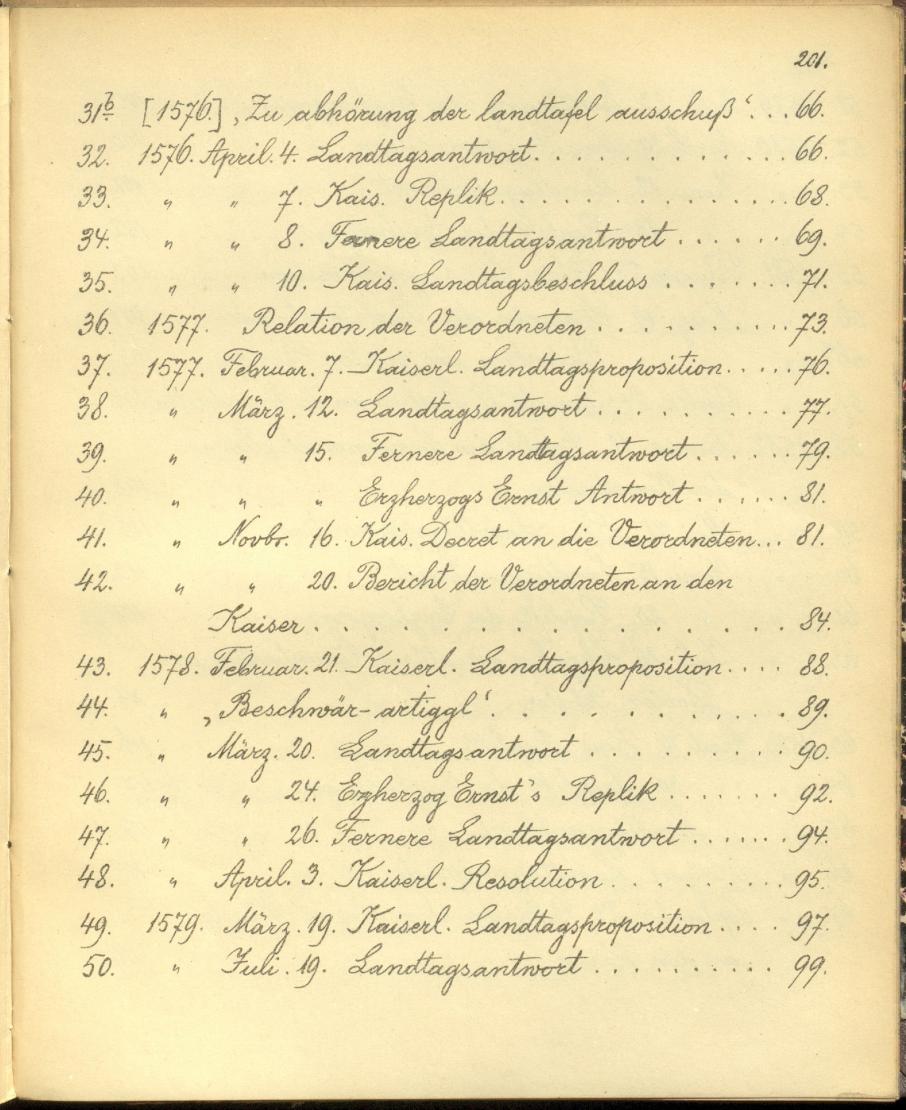 201.
31b [1576.] ‚Zu abhörung der landtafel ausschuß‘... 66.
32. 1576. April. 4. Landtagsantwort. . . . . . . . . . . . . 66.
33. " " 7. Kais. Replik. . . . . . . . . . . . . . . 68.
34. " " 8. Fernere Landtagsantwort . . . . . . 69.
35. " " 10. Kais. Landtagsbeschluss . . . . . . . 71.
36. 1577. Relation der Verordneten . . . . . . . . . . 73.
37. 1577. Februar. 7. Kaiserl. Landtagsproposition. . . . . 76.
38. " März. 12. Landtagsantwort . . . . . . . . . . 77.
39. " " 15. Fernere Landtagsantwort . . . . . . 79.
40. " " " Erzherzogs Ernst Antwort . . . . . . 81.
41. " Novbr. 16. Kais. Decret an die Verordneten... 81.
42. " " 20. Bericht der Verordneten an den
Kaiser . . . . . . . . . . . . . . . . . . 84.
43. 1578. Februar. 21. Kaiserl. Landtagsproposition. . . . 88.
44. " ‚Beschwär-artiggl‘. . . . . . . . . . . . 89.
45. " März. 20. Landtagsantwort . . . . . . . . . . 90.
46. " " 24. Erzherzog Ernst's Replik . . . . . . . 92.
47. " " 26. Fernere Landtagsantwort . . . . . . . 94.
48. " April. 3. Kaiserl. Resolution. . . . . . . . . . 95.
49. 1579. März. 19. Kaiserl. Landtagsproposition . . . . 97.
50. " Juli. 19. Landtagsantwort . . . . . . . . . . 99.